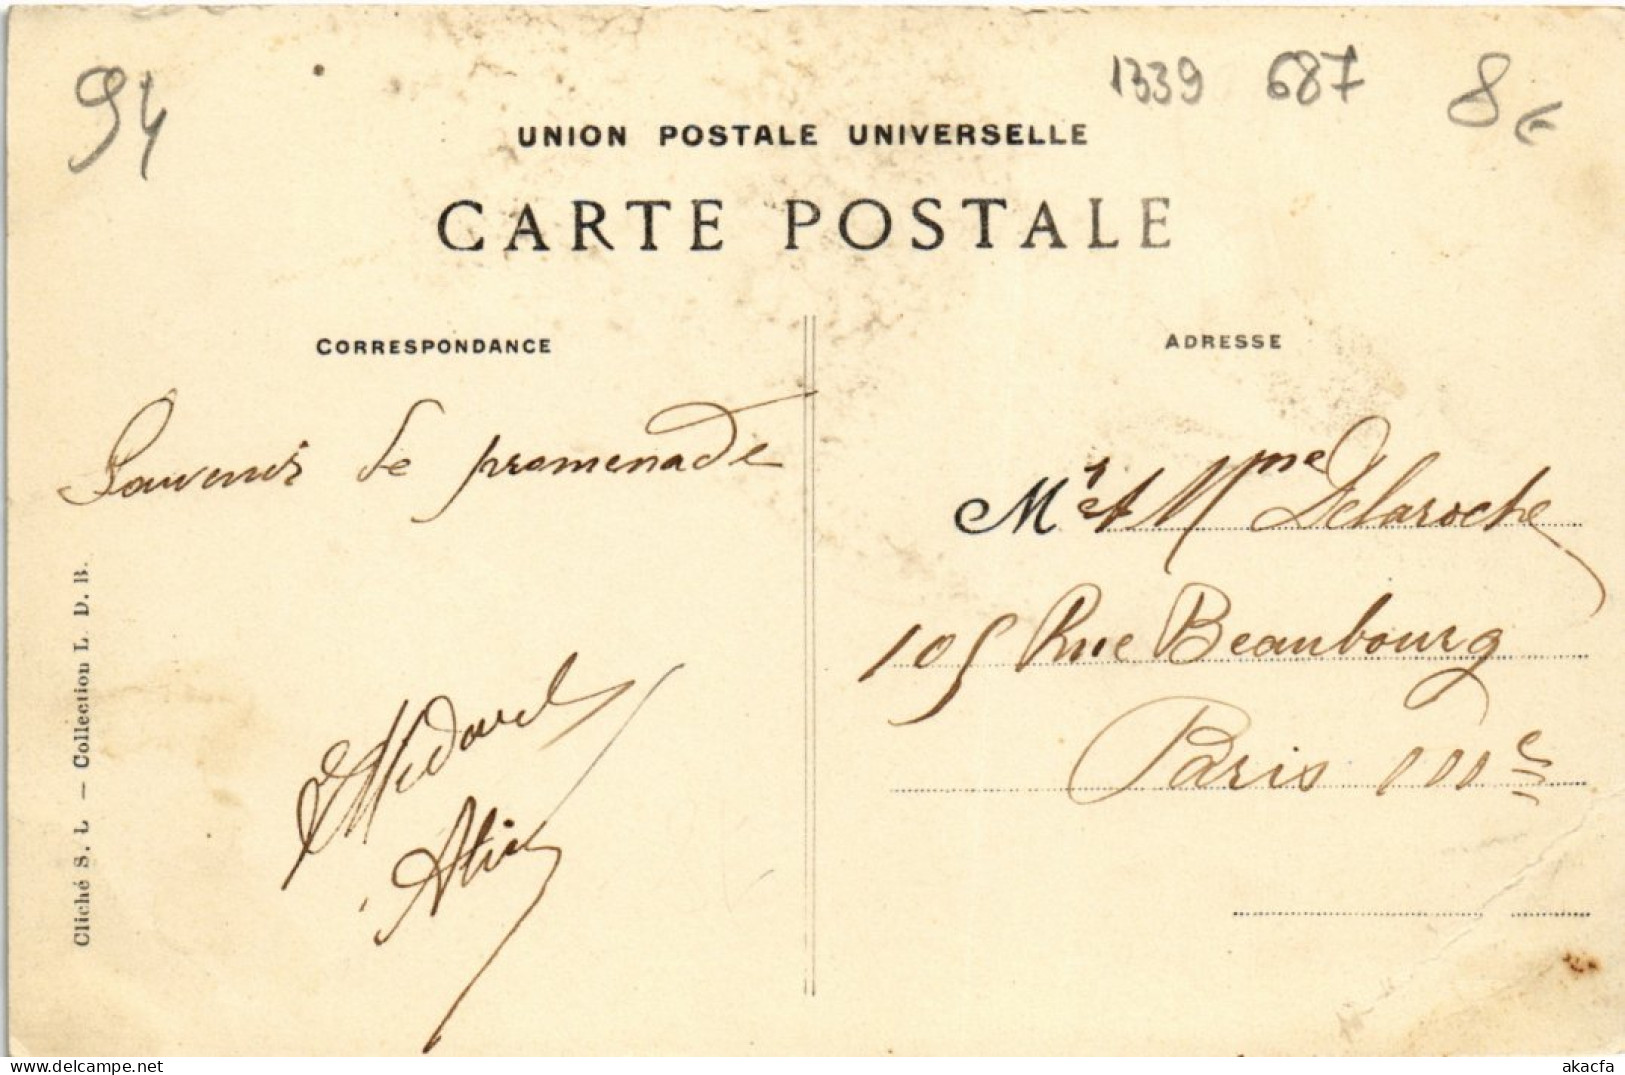 94
1339 687 8€
UNION POSTALE UNIVERSELLE
CARTE POSTALE
CORRESPONDANCE
ADRESSE
Souvenir de promenade
Mr et Mme Delaroche
105 Rue Beaubourg
Paris IIIe
Cliché S. L. — Collection L. D. B.
delcampe.net
akacfa